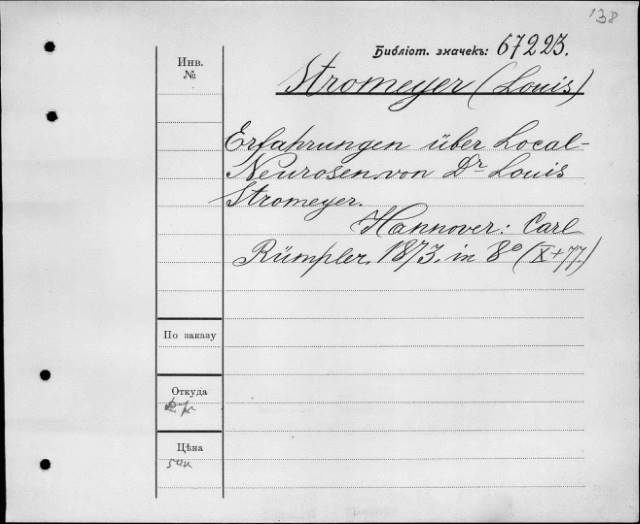 138
Библіот. значекъ: 67223.
Инв.
№
Stromeyer (Louis)
Erfahrungen über Local-
Neurosen von Dr Louis
Stromeyer.
Hannover: Carl
Rümpler. 1873. in 8º (X+77.)
По заказу
Откуда
Цѣна